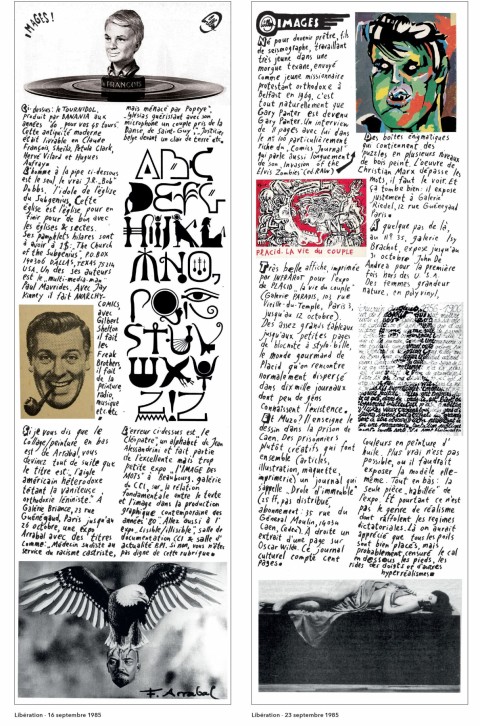 IMAGES!
FRANÇOIS
Ci-dessus: le TOURNIDOL,
produit par BANANIA aux
années 60 pour vos 45 tours.
Cette antiquité moderne
était livrable en Claude
François, Sheila, Petula Clark,
Hervé Vilard et Hugues
Aufraye
L'homme à la pipe ci-dessous
est le seul, le vrai J.R. "Bob"
Dobbs, l'idole de l'église
du Subgenius. Cette
église est l'église pour en
finir pour de bon avec
les églises & sectes.
Ses pamphlets hilares sont
à avoir à 1$: The Church
of the Subgenius, P.O. BOX
DALLAS, TEXAS
USA. Un de ses auteurs
est le multi-média-man
Paul Mavrides. Avec Jay
Kinney il fait ANARCHY
COMICS,
avec
Gilbert
Shelton
il fait
les
Freak
Brothers,
il fait
de la
peinture,
radio,
musique
etc. etc.
mais menacé par Popeye",
"Iglesias guérissant avec son
microphone un couple pris de la
Danse de Saint-Guy", "Justicier
belge devant un clair de terre" etc.
ABC
DEFG
HIJKL
MNO,
PQR
STUV
WXY
Z!Z
Si je vous dis que le
collage/peinture en bas
est de Arrabal, vous
devinez tout de suite que
le titre est: "L'aigle
américain hétérodoxe
tétant la vaniteuse
orthodoxie léniniste". À
Galérie Briance, 23 rue
Guénégaud, Paris, jusqu'au
26 octobre, une expo
Arrabal avec des titres
comme: "Médecin suédois au
service du racisme castriste,
L'erreur ci-dessus est le
"Cléopâtre", un alphabet de Jean
Alessandrini et fait partie
de l'excellente mais trop
petite expo "L'IMAGE DES
MOTS" à Beaubourg, galerie
du CCI, sur la relation
fondamentale entre le texte
et l'image dans la production
graphique contemporaine des
années '80. Allez aussi à l'
expo "Lisible/Illisible", salle de
documentation CCI & salle d'
actualité BPI. Si non, vous n'êtes
pas digne de cette rubrique.
F. Arrabal
Libération - 16 septembre 1985
IMAGES
Né pour devenir prêtre, fils
de seismographe, travaillant
très jeune dans une
morgue texane, envoyé
comme jeune missionnaire
protestant orthodoxe à
Belfast en 1969, c'est
tout naturellement que
Gary Panter est devenu
Gary Panter. Un interview
de 11 pages avec lui dans
le nº 100 particulièrement
riche du "Comics Journal"
qui parle aussi longuement
de son "Invasion of the
Elvis Zombies" (ed RAW)
PLACID. LA VIE DU COUPLE
Très belle affiche, imprimée
par INFRAROT pour l'expo
de PLACID, "la vie du couple"
(Galerie PARADIS, rue
Vieille-du-Temple, Paris 3,
jusqu'au 12 octobre).
Des assez grands tableaux
jusqu'aux petites pages
de blocnote à stylo bille
le monde gourmand de
Placid qu'on rencontre
normalement dispersé
dans dix mille journaux
dont peu de gens
connaissent l'existence.
Et Muzo? Il enseigne le
dessin dans la prison de
Caen. Des prisonniers
plutôt créatifs qui font
ensemble (articles,
illustration, maquette
imprimerie) un journal qui
s'appelle "Drôle d'immeuble"
(25 ff, pas distribué,
abonnement: 35 rue du
Général Moulin, 14034
Caen, Cedex). À droite un
extrait d'une page sur
Oscar Wilde. Ce journal
culturel compte cent
pages.
Des boîtes enigmatiques
qui contiennent des
puzzles en plusieurs niveaux
de bois peint. L'œuvre de
Christian Marx dépasse les
mots, il faut le voir. Et
ça tombe bien: il expose
justement à Galerie
Riedel, 12 rue Guénégaud
Paris.
A quelque pas de là,
au nº 35, galerie Isy
Brachot, expose jusqu'au
31 octobre John De
Andrea pour la première
fois hors des U.S.A.
Des femmes grandeur
nature, en polyvinyl,
couleurs en peinture d'
huile. Plus vrai n'est pas
possible, ou il faudrait
exposer la modèle elle-
même. Tout en bas: la
seule pièce habillée de
l'expo. Et pourtant ce n'est
pas le genre de réalisme
dont raffolent les régimes
dictatoriales. Là on aurait
apprécié que tous les poils
sont bien placés, mais
probablement censuré le cal
en dessous les pieds, les
rides des doigts et d'autres
hyperréalismes.
Libération - 23 septembre 1985